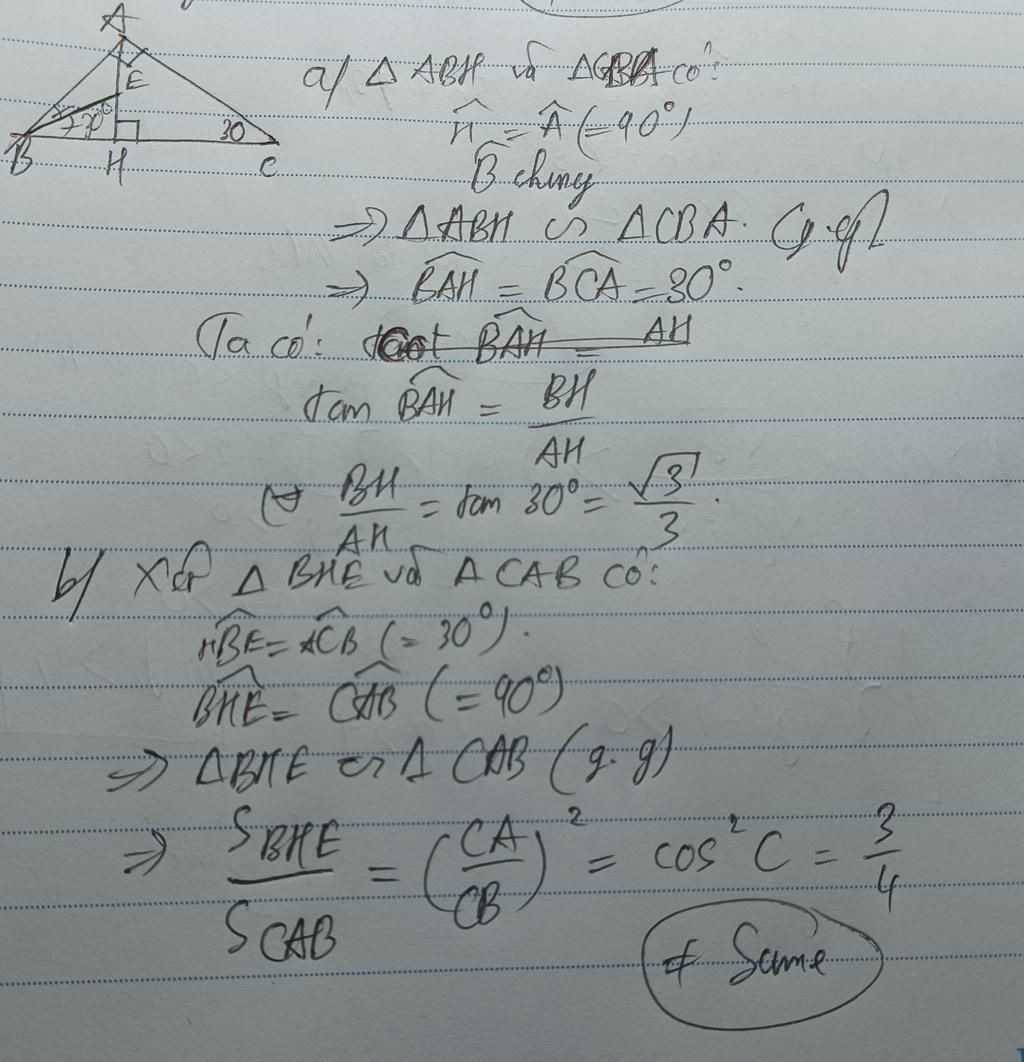 A
E
B
H
C
30°
30
a/ △ ABH và △CBA có:
Ĥ = Â (= 90°)
B̂ chung
=> △ABH ∽ △CBA. (g.g)
=> BAH = BCA = 30°.
Ta có: BAH = AH
tan BAH = BH/AH
<=> BH/AH = tan 30° = √3/3.
b/ Xét △ BHE và △ CAB có:
HBE = ACB (= 30°).
BHE = CAB (= 90°)
=> △BHE ∽ △ CAB (g.g)
=> S BHE / S CAB = (CA/CB)² = cos² C = 3/4
≠ Same